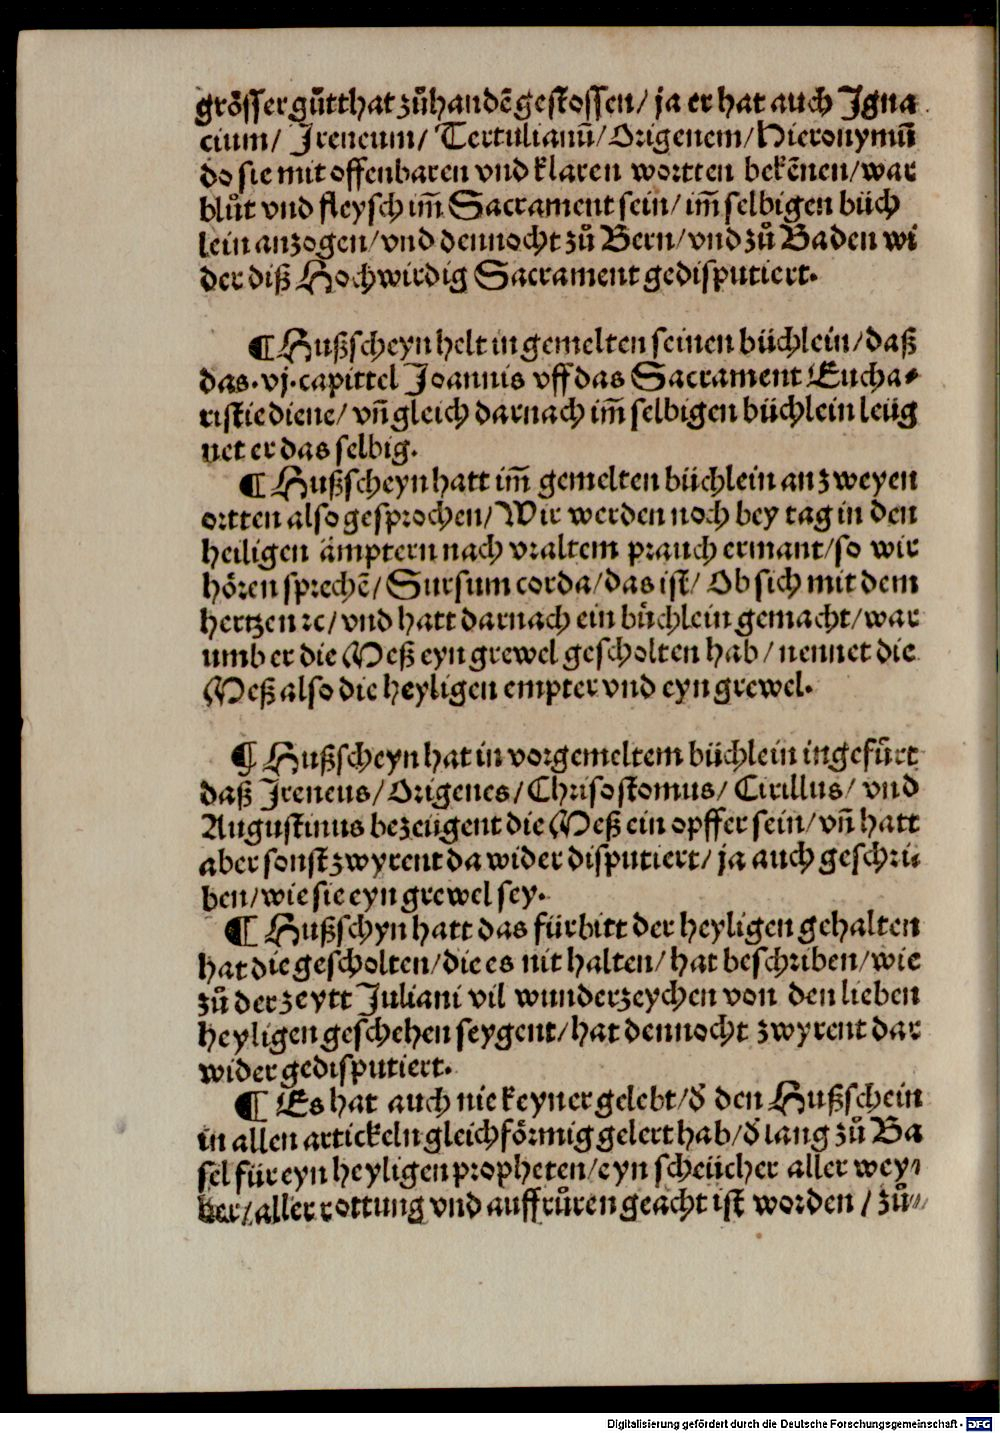 grösser gůtthat zůhandē gestossen/ ja er hat auch Igna
cium/ Ireneum/ Tertulianū/ Origenem/ Hieronymū
do sie mit offenbaren vnd klaren wortten bekēnen/ war
blůt vnd fleysch im̄ Sacrament sein/ im̄ selbigen büch
lein anzogen/ vnd dennocht zů Bern/ vnd zů Baden wi
der diß Hochwirdig Sacrament gedisputiert.
¶ Hußscheyn helt in gemelten seinen büchlein/ daß
das .vj. capittel Joannis vff das Sacrament Eucha⸗
ristie diene/ vn̄ gleich darnach im̄ selbigen büchlein leüg
net er das selbig.
¶ Hußscheyn hatt im̄ gemelten büchlein an zweyen
ortten also gesprochen/ Wir werden noch bey tag in den
heiligen ämptern nach vraltem prauch ermant/ so wir
hören sprechē/ Sursum corda/ das ist/ Ob sich mit dem
hertzen ⁊c/ vnd hatt darnach ein büchlein gemacht/ war
umb er die Meß eyn grewel gescholten hab/ nennet die
Meß also die heyligen empter vnd eyn grewel.
¶ Hußscheyn hat in vorgemeltem büchlein ingefürt
daß Ireneus/ Origenes/ Chrisostomus/ Cirillus/ vnd
Augustinus bezeügent die Meß ein opffer sein/ vn̄ hatt
aber sonst zwyrent da wider disputiert/ ja auch geschri⸗
ben/ wie sie eyn grewel sey.
¶ Hußschyn hatt das fürbitt der heyligen gehalten
hat die gescholten/ die es nit halten/ hat beschriben/ wie
zů der zeytt Juliani vil wunderzeychen von den lieben
heyligen geschehen seygent/ hat dennocht zwyrent dar
wider gedisputiert.
¶ Es hat auch nie keyner gelebt/ d̓ den Hußschein
in allen artickeln gleichförmig gelert hab/ d̓ lang zů Ba
sel für eyn heyligen propheten/ eyn scheücher aller wey⸗
ber/ aller rottung vnd auffrůren geacht ist worden/ zů⸗
Digitalisierung gefördert durch die Deutsche Forschungsgemeinschaft - DFG